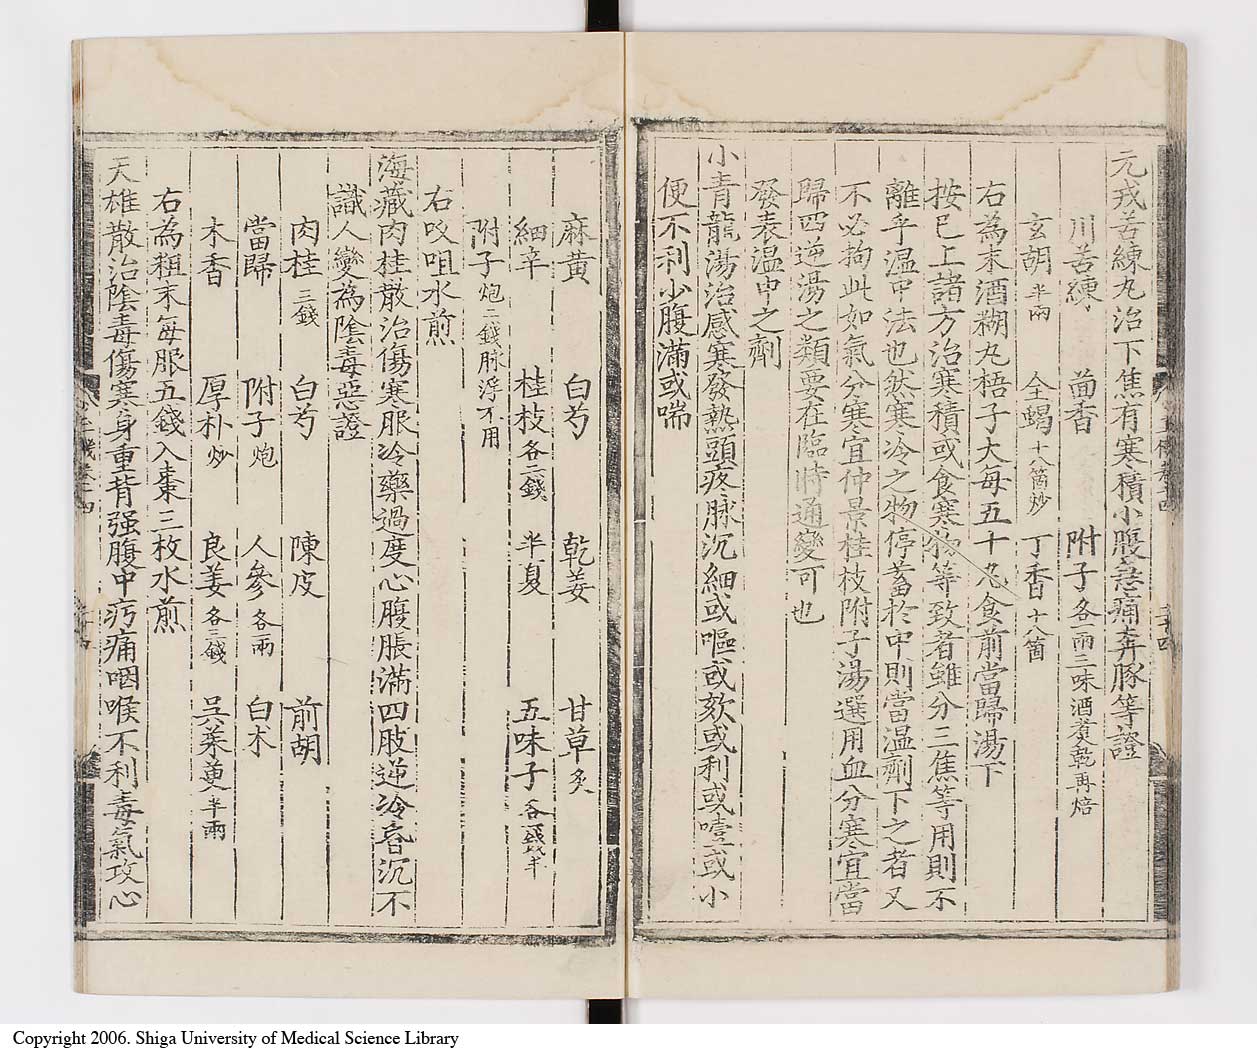 元戎苦練丸治下焦有寒積小腹急痛奔豚等證
川苦練 茴香 附子各一兩三味酒煑乾再焙
玄胡半兩 全蝎十八箇炒 丁香十八箇
右為末酒糊丸梧子大每五十丸食前當歸湯下
按已上諸方治寒積或食寒物等致者雖分三焦等用則不
離乎温中法也然寒冷之物停蓄於中則當温劑下之者又
不必拘此如氣分寒宜仲景桂枝附子湯選用血分寒宜當
歸四逆湯之類要在臨時通變可也
發表温中之劑
小青龍湯治感寒發熱頭疼脉沉細或嘔或欬或利或噎或小
便不利少腹滿或喘
麻黃 白芍 乾姜 甘草炙
細辛 桂枝各二錢 半夏 五味子各一錢半
附子炮二錢脉浮不用
右㕮咀水煎
海藏肉桂散治傷寒服冷藥過度心腹脹滿四肢逆冷昏沉不
識人變為陰毒惡證
肉桂三錢 白芍 陳皮 前胡
當歸 附子炮 人參各一兩 白朮
木香 厚朴炒 良姜各三錢 吳茱萸半兩
右為粗末每服五錢入棗三枚水煎
天雄散治陰毒傷寒身重背强腹中㽲痛咽喉不利毒氣攻心
Copyright 2006. Shiga University of Medical Science Library